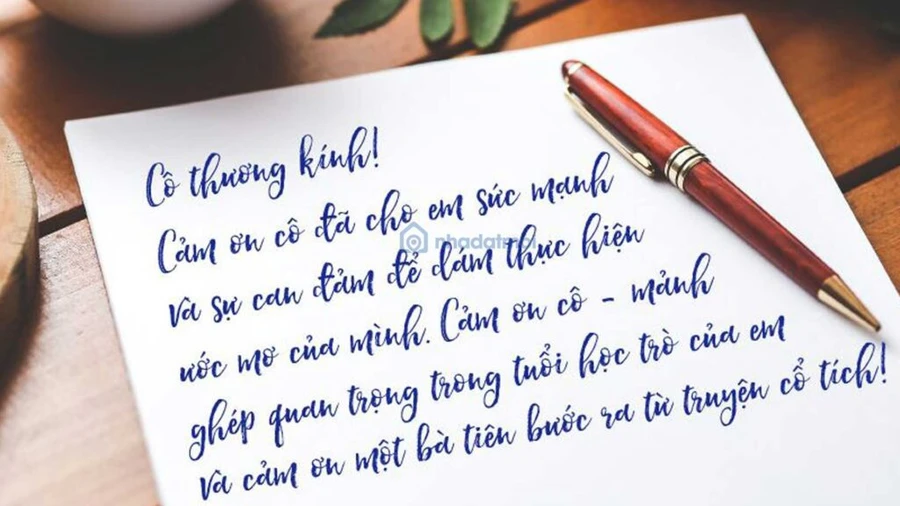 Cô thương kính!
Cảm ơn cô đã cho em sức mạnh
và sự can đảm để dám thực hiện
ước mơ của mình. Cảm ơn cô - mảnh
ghép quan trọng trong tuổi học trò của em
và cảm ơn một bà tiên bước ra từ truyện cổ tích!